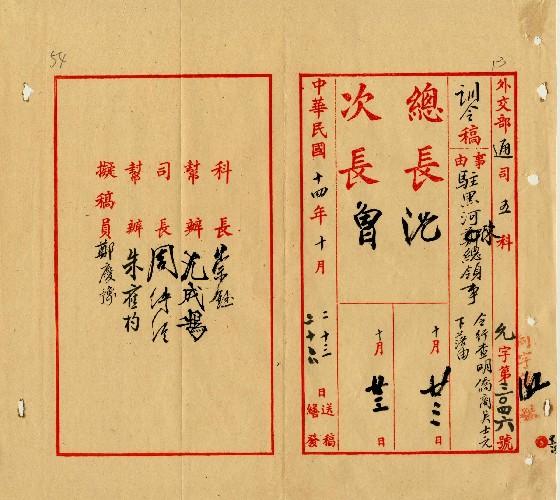 外交部通司五科 允字第三〇四六號
訓令稿
事由 駐黑河 總領事 令行查明僑商吳士元下落由
總長 沈 十月廿二日
次長 曾 十月廿三日
中華民國十四年十月 二十三日送稿 二十六日繕發
科長
幫辦
司長 周傳經
幫辦 朱
擬稿員 鄭慶豫
54
13